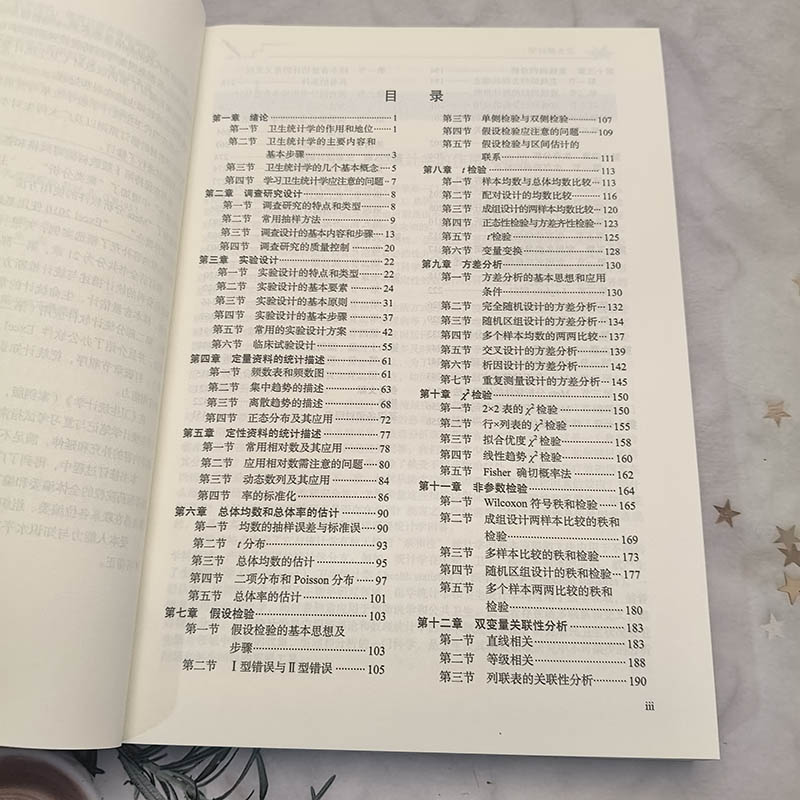 目 录
第一章 绪论 1
第一节 卫生统计学的作用和地位 1
第二节 卫生统计学的主要内容和
基本步骤 3
第三节 卫生统计学的几个基本概念 5
第四节 学习卫生统计学应注意的问题 7
第二章 调查研究设计 8
第一节 调查研究的特点和类型 8
第二节 常用抽样方法 9
第三节 调查设计的基本内容和步骤 13
第四节 调查研究的质量控制 20
第三章 实验设计 22
第一节 实验设计的特点和类型 22
第二节 实验设计的基本要素 24
第三节 实验设计的基本原则 31
第四节 实验设计的基本步骤 37
第五节 常用的实验设计方案 42
第六节 临床试验设计 55
第四章 定量资料的统计描述 61
第一节 频数表和频数图 61
第二节 集中趋势的描述 63
第三节 离散趋势的描述 68
第四节 正态分布及其应用 72
第五章 定性资料的统计描述 77
第一节 常用相对数及其应用 78
第二节 应用相对数需注意的问题 80
第三节 动态数列及其应用 84
第四节 率的标准化 86
第六章 总体均数和总体率的估计 90
第一节 均数的抽样误差与标准误 90
第二节 t分布 93
第三节 总体均数的估计 95
第四节 二项分布和 Poisson 分布 97
第五节 总体率的估计 101
第七章 假设检验 103
第一节 假设检验的基本思想及
步骤 103
第二节 Ⅰ型错误与Ⅱ型错误 105
第三节 单侧检验与双侧检验 107
第四节 假设检验应注意的问题 109
第五节 假设检验与区间估计的
联系 111
第八章 t检验 113
第一节 样本均数与总体均数比较 113
第二节 配对设计的均数比较 116
第三节 成组设计的两样本均数比较 120
第四节 正态性检验与方差齐性检验 123
第五节 t'检验 125
第六节 变量变换 128
第九章 方差分析 130
第一节 方差分析的基本思想和应用
条件 130
第二节 完全随机设计的方差分析 132
第三节 随机区组设计的方差分析 134
第四节 多个样本均数的两两比较 137
第五节 交叉设计的方差分析 139
第六节 析因设计的方差分析 142
第七节 重复测量设计的方差分析 145
第十章 χ²检验 150
第一节 2×2表的χ²检验 150
第二节 行×列表的χ²检验 155
第三节 拟合优度χ²检验 158
第四节 线性趋势χ²检验 160
第五节 Fisher 确切概率法 162
第十一章 非参数检验 164
第一节 Wilcoxon 符号秩和检验 165
第二节 成组设计两样本比较的秩和
检验 169
第三节 多样本比较的秩和检验 173
第四节 随机区组设计的秩和检验 177
第五节 多个样本两两比较的秩和
检验 180
第十二章 双变量关联性分析 183
第一节 直线相关 183
第二节 等级相关 188
第三节 列联表的关联性分析 190
iii